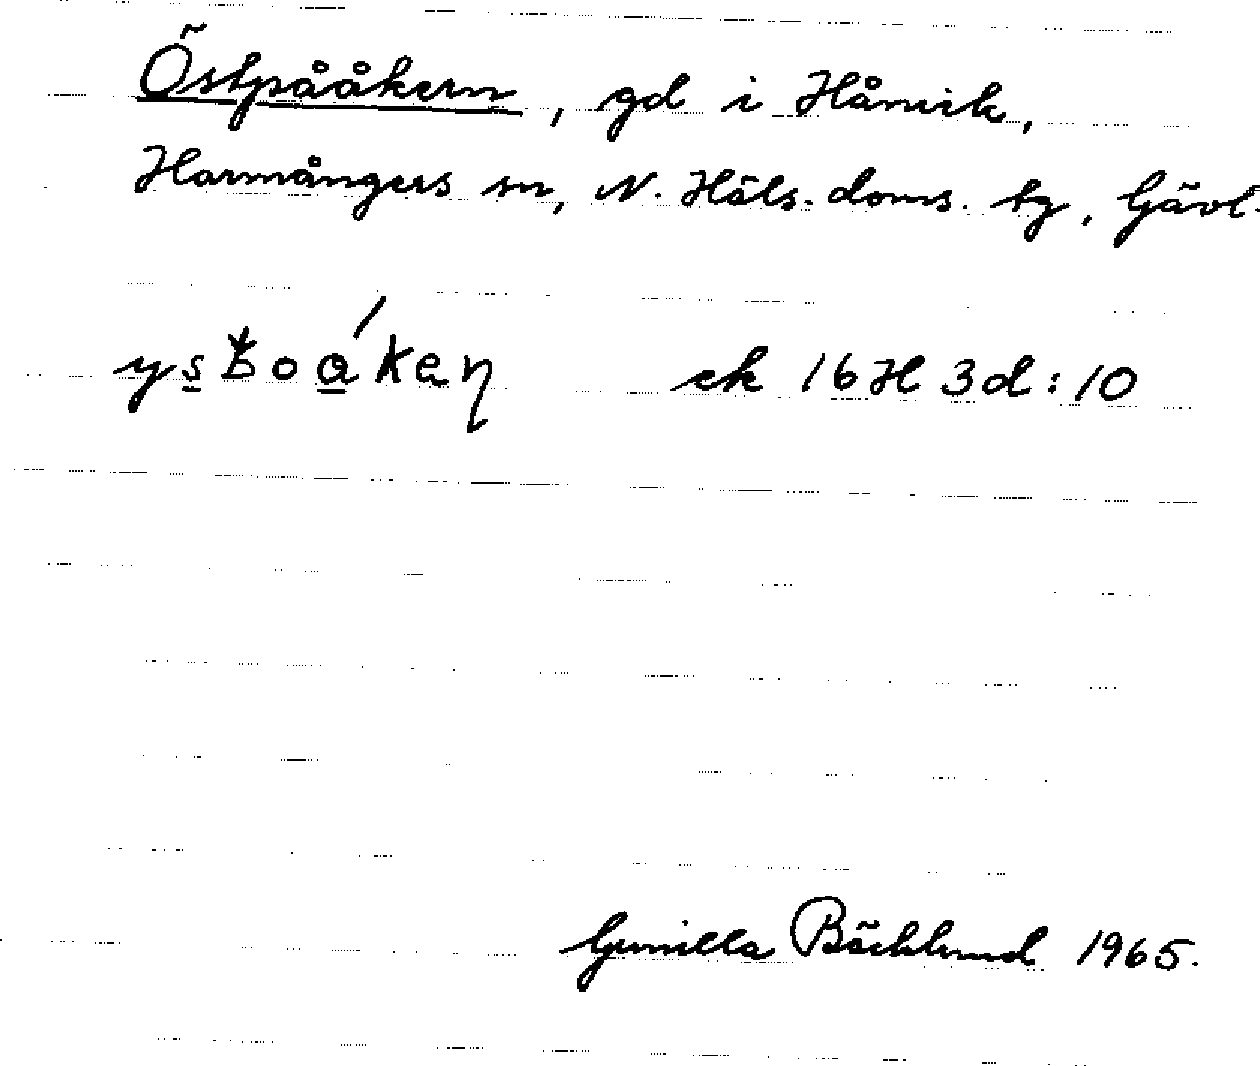 Östpååkern, gd i Hårvik,
Harmångers sn, N. Häls. doms. tg, Gävl.
ek 16H 3d:10
Gunilla Bäcklund 1965.